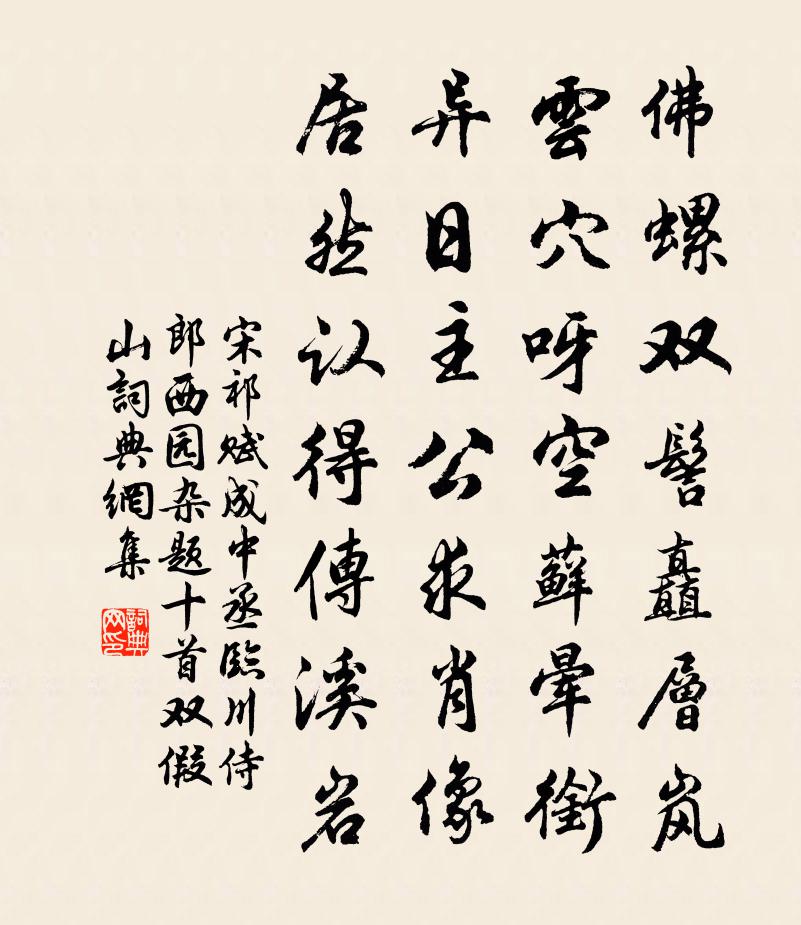 佛螺双髻矗層岚
雲穴呀空蘚暈銜
异日主公求肖像
居然认得傅溪岩
宋祁赋成中丞臨川侍
郎西园杂题十首双假
山詞典網集
詞典網印